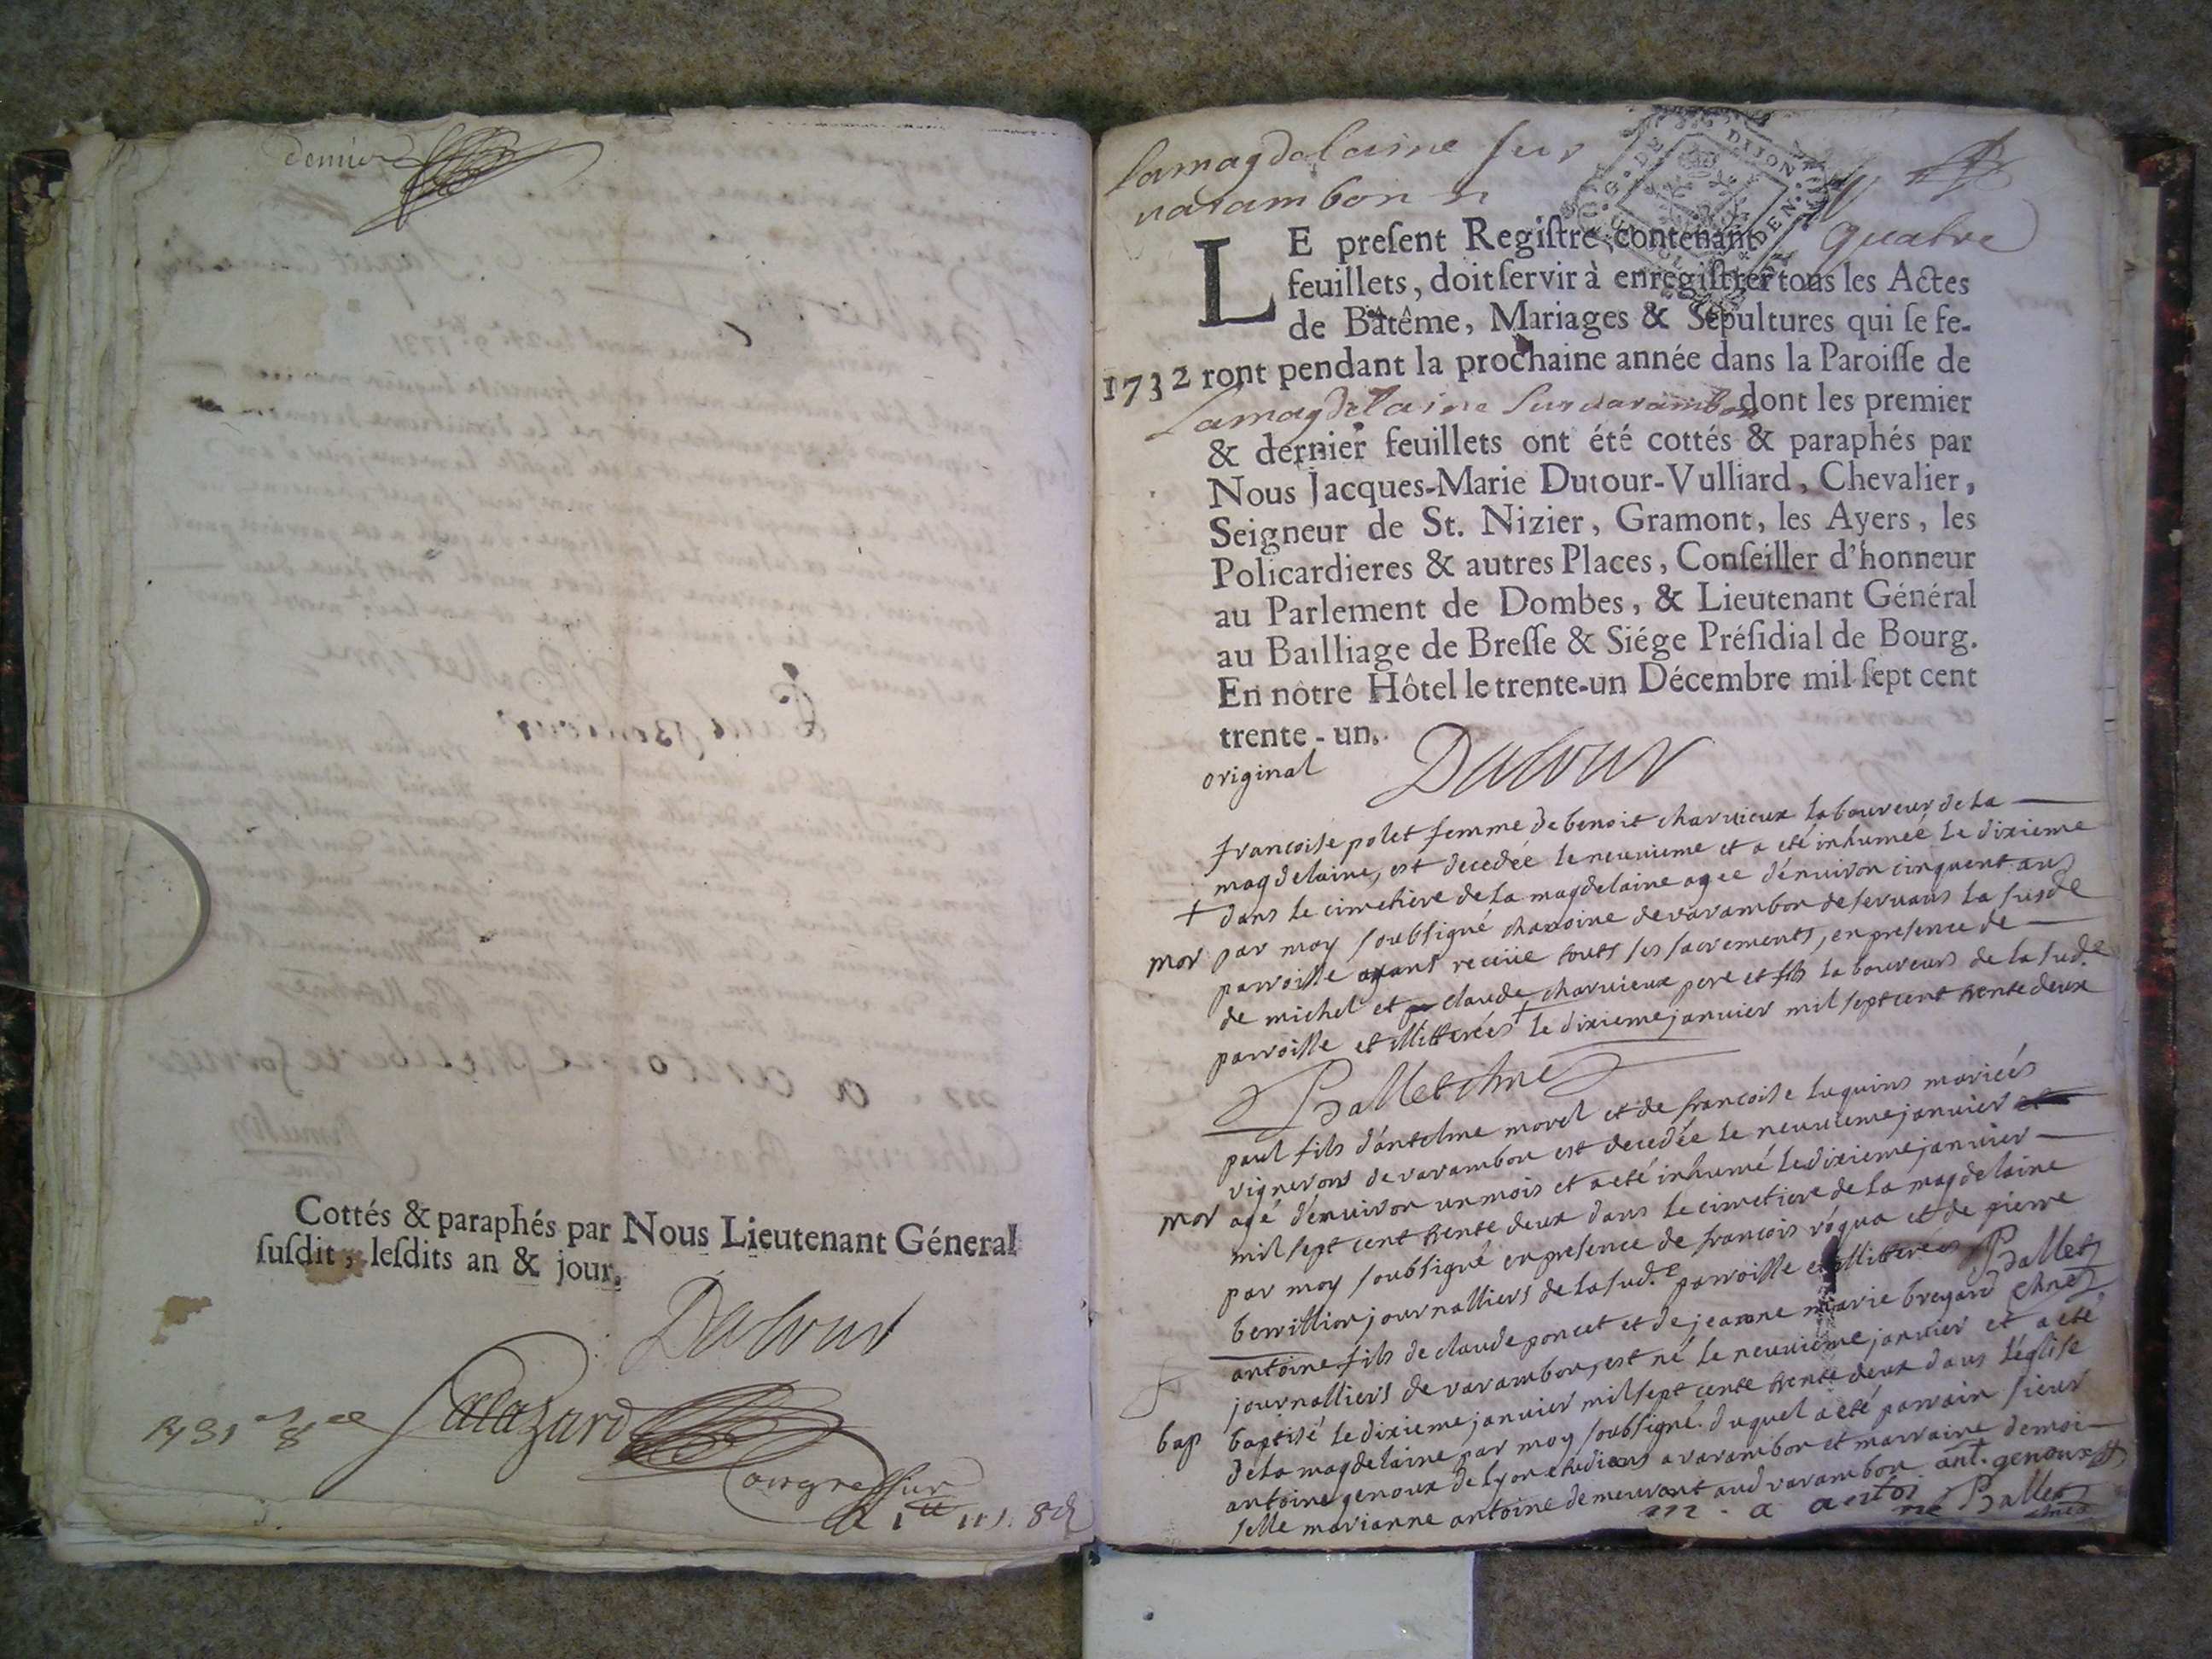 dernier
Cottés & paraphés par Nous Lieutenant Géneral
ſuſdit, leſdits an & jour.
Dutour
Salazard
lamagdelaine sur
varambon
LE preſent Regiſtre contenant quatre
feuillets, doit ſervir à enregiſtrer tous les Actes
de Batême, Mariages & Sépultures qui ſe fe-
1732 ront pendant la prochaine année dans la Paroiſſe de
Lamagdelaine sur varambon dont les premier
& dernier feuillets ont été cottés & paraphés par
Nous Jacques-Marie Dutour-Vulliard, Chevalier,
Seigneur de St. Nizier, Gramont, les Ayers, les
Policardieres & autres Places, Conſeiller d'honneur
au Parlement de Dombes, & Lieutenant Général
au Bailliage de Breſſe & Siége Préſidial de Bourg.
En nôtre Hôtel le trente-un Décembre mil ſept cent
trente-un.
original
Dutour
francoise polet femme de benoit charvieux laboureur de la
magdelaine, est decedée le neuvieme et a eté inhumeé le dixieme
+ dans le cimetiere de la magdelaine agee d'environ cinquent ans
mor par moy soubsigné chanoine de varambon deservans la susde
parroisse ayant recüe touts ses sacrements, en presence de
de michel et claude charvieux pere et fils laboureurs de la sud.e
parroisse et illitterées + le dixieme janvier mil sept cent trente deux
Ballet chne
paul fils d'antelme morel et de francoise luquins mariées
vignerons de varambon est decedée le neuvieme janvier
mor agé d'environ un mois et a eté inhumé le dixieme janvier
mil sept cent trente deux dans le cimetiere de la magdelaine
par moy soubsigné en presence de francois roqua et de pierre
berrillion journalliers de la sud.e parroisse et illitterées Ballet
chne
antoine fils de claude poncet et de jeanne marie breyard
journalliers de varambon, est né le neuvieme janvier et a eté
bap baptisé le dixieme janvier mil sept cente trente deux dans l'église
de la magdelaine par moy soubsigné. duquel a eté parrain sieur
antoine genoux de lyon etudians a varambon et marraine demoi-
selle marianne antoine demeurant aud varambon ant. genoux
m. a antoi
ne Ballet
chne